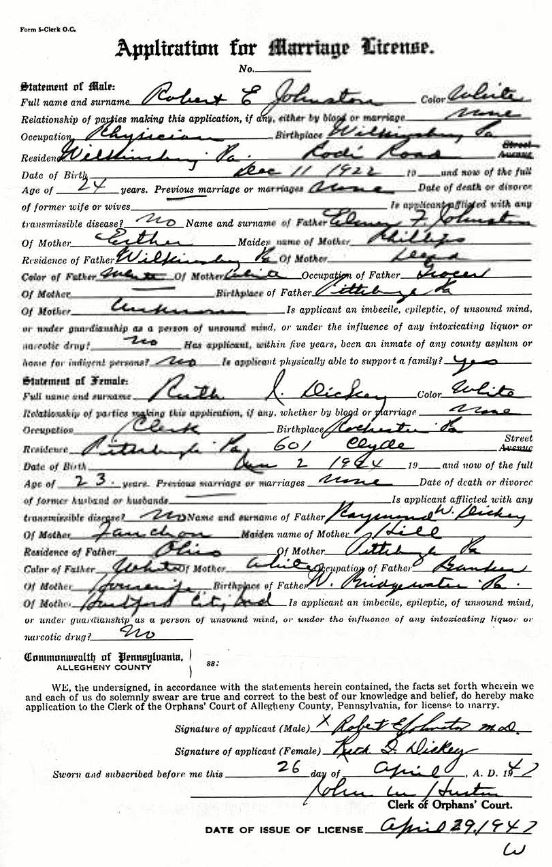 Form 5-Clerk O.C.
Application for Marriage License.
No.
Statement of Male:
Full name and surname Robert E Johnston Color White
Relationship of parties making this application, if any, either by blood or marriage none
Occupation Physician Birthplace Wilkinsburg Pa
Street
Residence Wilkinsburg Pa. Rodi Road Avenue
Date of Birth Dec 11 1922 19 and now of the full
Age of 24 years. Previous marriage or marriages none Date of death or divorce
of former wife or wives Is applicant afflicted with any
transmissible disease? No Name and surname of Father Elmer F. Johnston
Of Mother Esther Maiden name of Mother Phillips
Residence of Father Wilkinsburg Pa Of Mother Dec'd
Color of Father White Of Mother White Occupation of Father Grocer
Of Mother Birthplace of Father Pittsburgh Pa
Of Mother Unknown Is applicant an imbecile, epileptic, of unsound mind,
or under guardianship as a person of unsound mind, or under the influence of any intoxicating liquor or
narcotic drug? no Has applicant, within five years, been an inmate of any county asylum or
home for indigent persons? no Is applicant physically able to support a family? yes
Statement of Female:
Full name and surname Ruth I. Dickey Color White
Relationship of parties making this application, if any, whether by blood or marriage none
Occupation Clerk Birthplace Rochester Pa
Street
Residence Pittsburgh Pa, 601 Clyde Avenue
Date of Birth 2 1924 19 and now of the full
Age of 23 years. Previous marriage or marriages none Date of death or divorce
of former husband or husbands Is applicant afflicted with any
transmissible disease? No Name and surname of Father Raymond W. Dickey
Of Mother Fanchon Maiden name of Mother Hill
Residence of Father Ohio Of Mother Pittsburgh Pa
Color of Father White Of Mother White Occupation of Father Banker
Of Mother Housewife Birthplace of Father W. Bridgewater Pa.
Of Mother City, Ind Is applicant an imbecile, epileptic, of unsound mind,
or under guardianship as a person of unsound mind, or under the influence of any intoxicating liquor or
narcotic drug? No
Commonwealth of Pennsylvania,
ALLEGHENY COUNTY } ss:
WE, the undersigned, in accordance with the statements herein contained, the facts set forth wherein we
and each of us do solemnly swear are true and correct to the best of our knowledge and belief, do hereby make
application to the Clerk of the Orphans' Court of Allegheny County, Pennsylvania, for license to marry.
Signature of applicant (Male) X Robert E Johnston M.D.
Signature of applicant (Female) Ruth I. Dickey
Sworn and subscribed before me this 26 day of April, A. D. 1947
John M Huston
Clerk of Orphans' Court.
DATE OF ISSUE OF LICENSE April 29, 1947
W